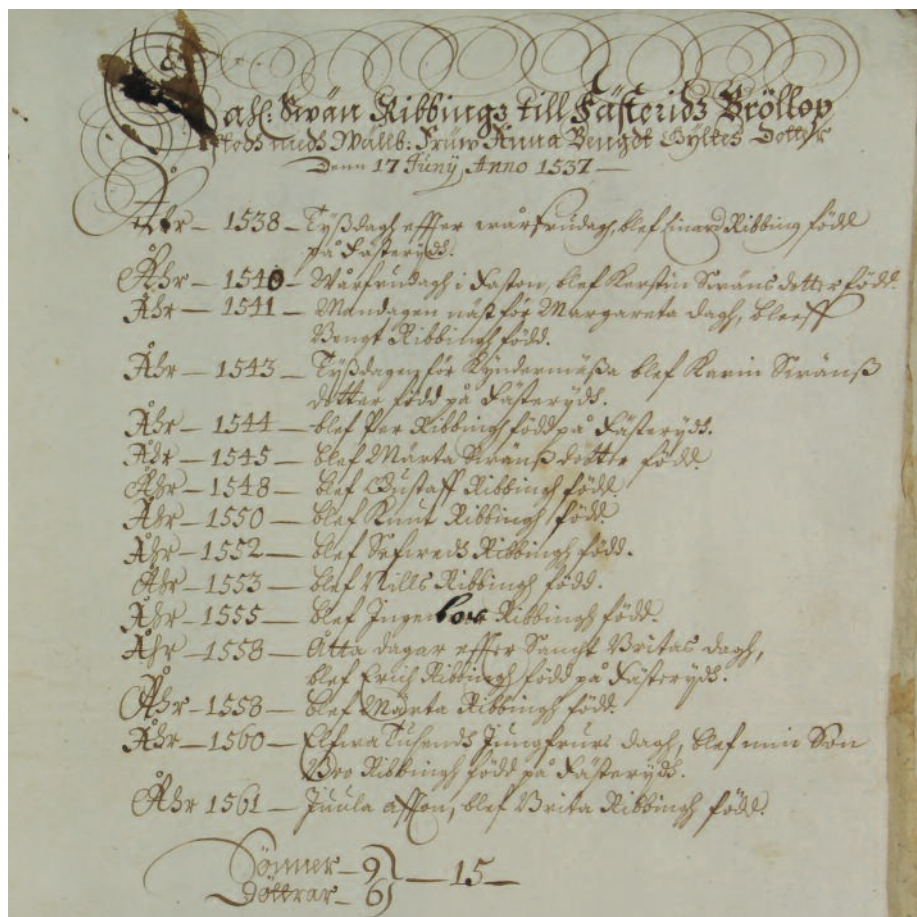 Sahl: Swän Ribbings till Fästeridz Bröllop
stodh medh Wälb: Früw Anna Bengdt Gyltes Dotter
Denn 17 Junij, Anno 1537 —
Åhr — 1538 — Tyßdagh effter wårfrudagh, blef Linard Ribbing född
på Fästerydh.
Åhr — 1540 — Wårfrudagh i Faston, blef Kerstin Swäns dotter född.
Åhr — 1541 — Mandagen näst för Margareta dagh, bleff
Bengt Ribbingh född.
Åhr — 1543 — Tyßdagen för Kyndermäßa blef Karin Swänß
dotter född på Fästerydh.
Åhr — 1544 — blef Per Ribbingh född på Fästerydh.
Åhr — 1545 — blef Märta Swänß dotter född.
Åhr — 1548 — blef Gustaff Ribbingh född.
Åhr — 1550 — blef Knut Ribbingh född.
Åhr — 1552 — blef Sefwedh Ribbingh född.
Åhr — 1553 — blef Nills Ribbingh född.
Åhr — 1555 — blef Ingenbor Ribbingh född.
Åhr — 1558 — Åtta dagar effter Sancht Britas dagh,
blef Erich Ribbingh född på Fästerydh.
Åhr — 1558 — blef Märta Ribbingh född.
Åhr — 1560 — Elfwa Tusendh Jungfrurs dagh, blef min Son
Bro Ribbingh född på Fästerydh.
Åhr 1561 — Juula affton, blef Brita Ribbingh född.
Sönner — 9 — 15 —
Döttrar — 6